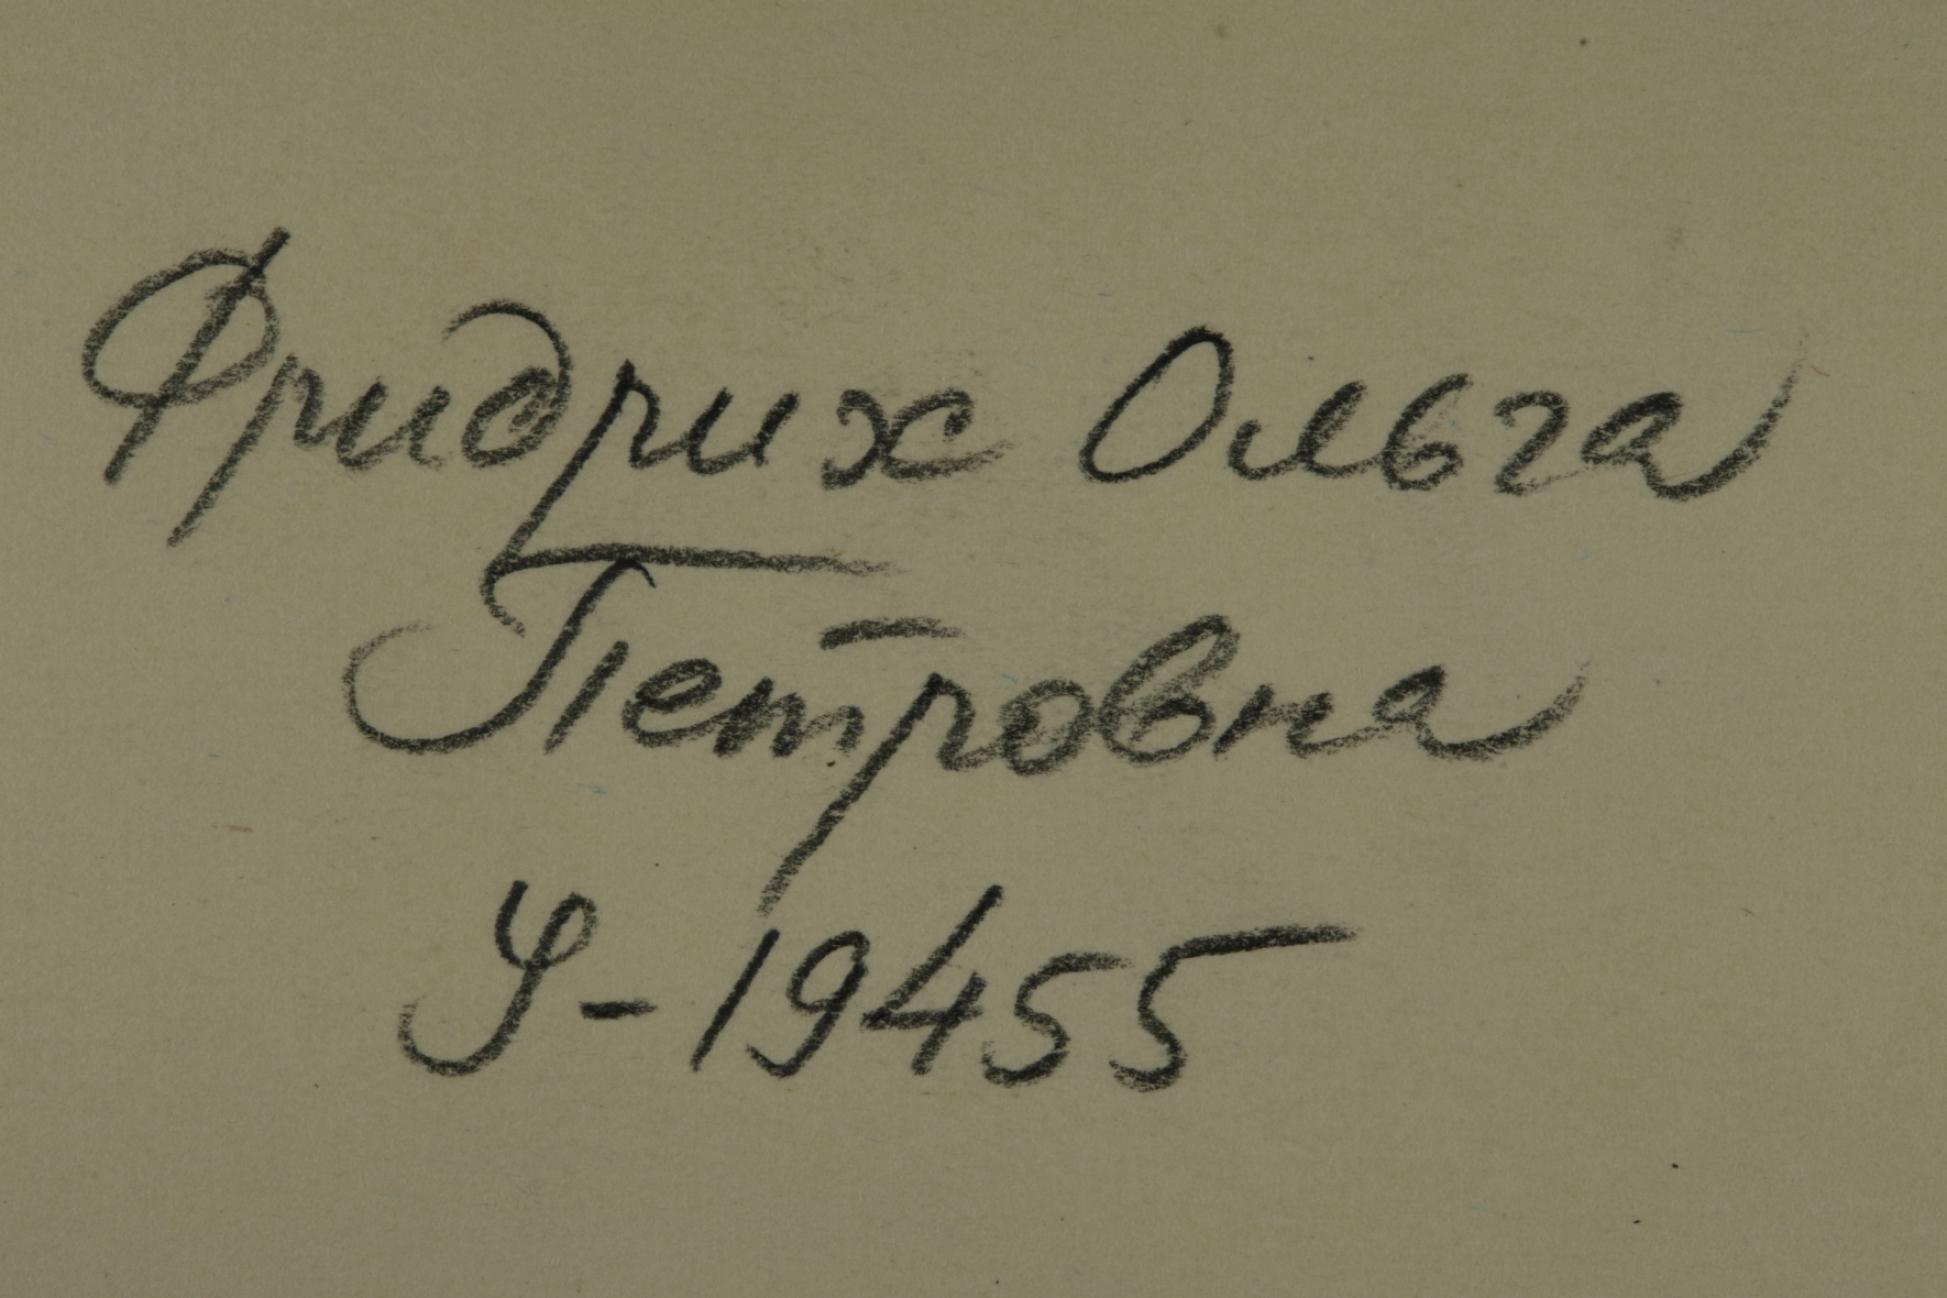 Фридрих Ольга
Петровна
У-19455